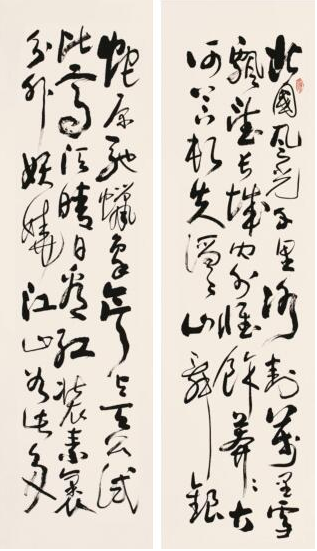 北國風光千里冰封萬里雪
飄望長城内外惟餘莽〻大
河上下頓失滔〻山舞銀
蛇原馳蠟象欲與天公試
比高須晴日看紅裝素裹
分外妖嬈江山如此多